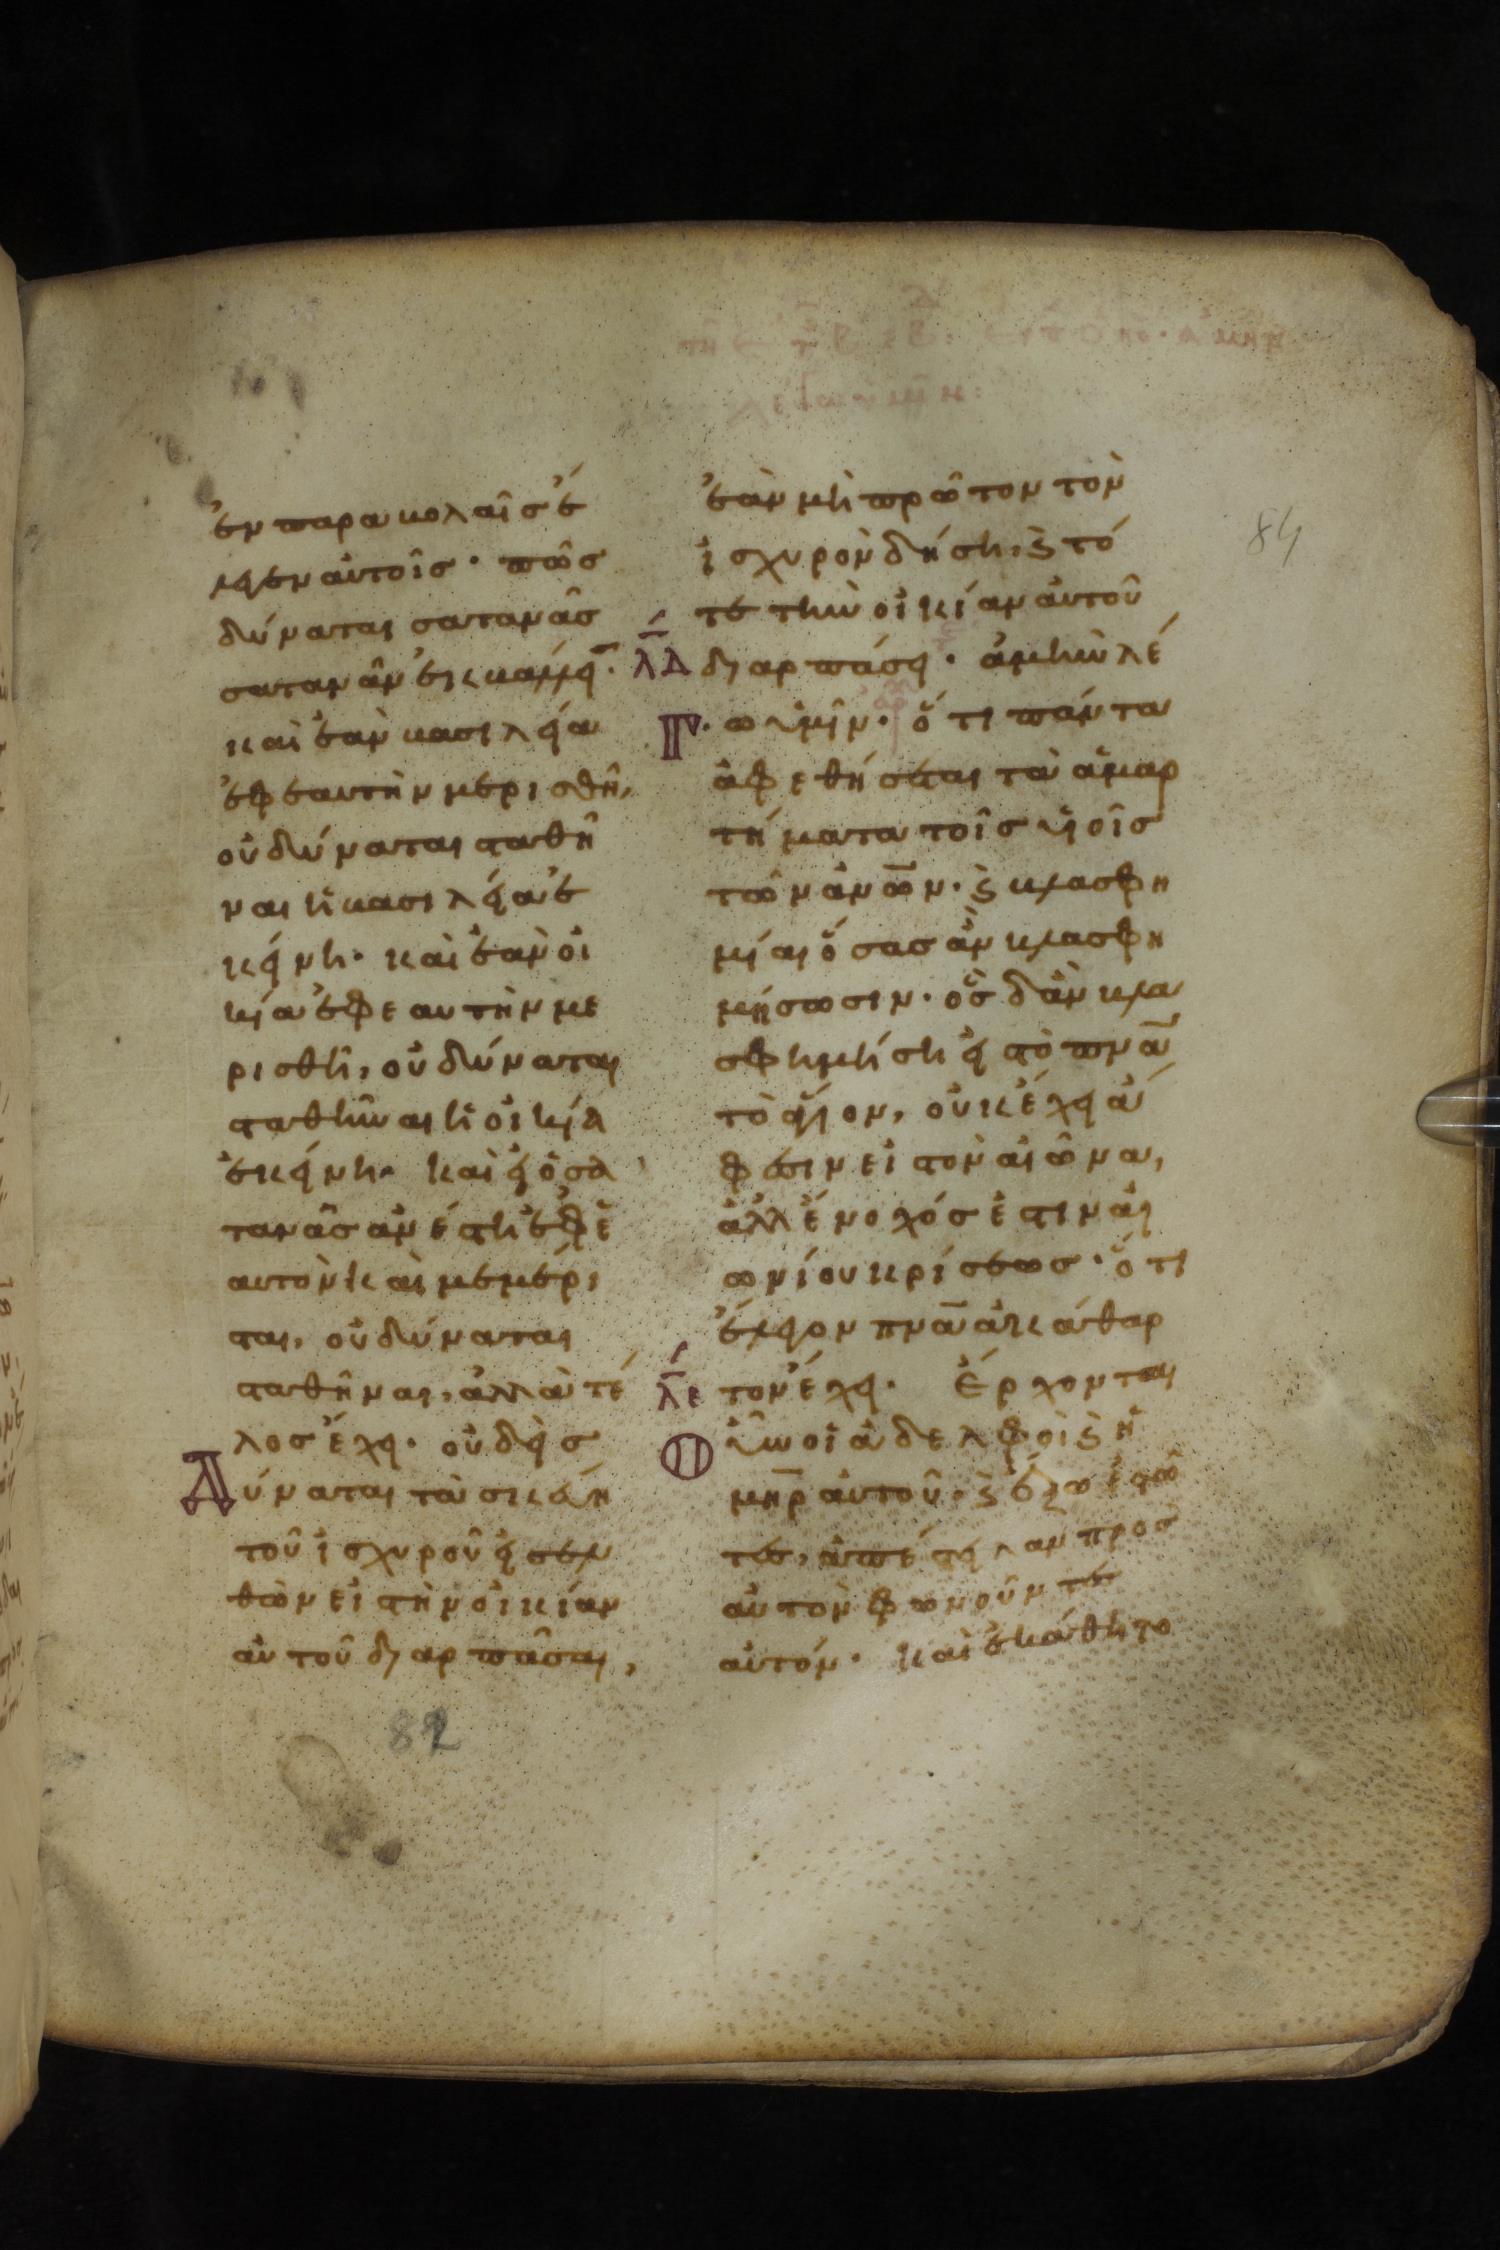 ἐν παραβολαῖσ ἔ
λεγεν αὐτοῖσ· πῶσ
δύναται σατανᾶσ
σατανᾶν ἐκβάλλειν·
καὶ ἐὰν βασιλεία
ἐφ ἑαυτὴν μερισθῆ,
οὐ δύναται σταθῆ
ναι ἡ βασιλεία ἐ
κείνη· καὶ ἐὰν οἰ
κία ἐφ ἑαυτὴν με
ρισθῆ, οὐ δύναται
σταθῆναι ἡ οἰκία
ἐκείνη· καὶ εἰ ὁ σα
τανᾶσ ἀνέστη ἐφ ἑ
αυτὸν καὶ μεμέρι
σται, οὐ δύναται
σταθῆναι, ἀλλὰ τέ
λοσ ἔχει· οὐδεὶσ
Δύναται τὰ σκεύη
τοῦ ἰσχυροῦ εἰσελ
θὼν εἰσ τὴν οἰκίαν
αὐτοῦ διαρπᾶσαι,
82
ἐὰν μὴ πρῶτον τὸν
ἰσχυρὸν δήση, ϗ τό
τε τὴν οἰκίαν αὐτοῦ
λδ διαρπάσει· ἀμὴν λέ
Γ·ω ὑμῖν· ὅτι πάντα
ἀφεθήσεται τὰ ἁμαρ
τήματα τοῖσ υἱοῖσ
τῶν ἀνων· ϗ βλασφη
μίαι ὅσασ ἂν βλασφη
μήσωσιν· ὃσ δ ἂν βλα
σφημήση εἰσ τὸ πνα
τὸ ἅγιον, οὐκ ἔχει ἄ
φεσιν εἰσ τὸν αἰῶνα,
ἀλλ ἔνοχόσ ἐστιν αἰ
ωνίου κρίσεωσ· ὅτι
ἔλεγον πνα ἀκάθαρ
λε τον ἔχει· Ἔρχονται
Ο ὖν οἱ ἀδελφοὶ ϗ ἡ
μηρ αὐτοῦ· ϗ ἔξω ἑστῶ
τεσ, ἀπέστειλαν προσ
αὐτὸν φωνοῦντεσ
αὐτόν· καὶ ἐκάθητο
84